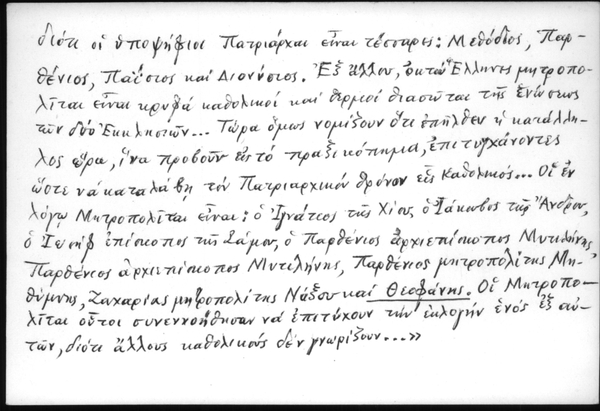 διότι οἱ ὑποψήφιοι Πατριάρχαι εἶναι τέσσαρες: Μεθόδιος, Παρ-
θένιος, Παΐσιος καί Διονύσιος. Ἐξ ἄλλου, ὀκτώ Ἕλληνες μητροπο-
λῖται εἶναι κρυφά καθολικοί καί θερμοί θιασῶται τῆς ἑνώσεως
τῶν δύο Ἐκκλησιῶν... Τώρα ὅμως νομίζουν ὅτι ἐπῆλθεν ἡ κατάλλη-
λος ὥρα, ἵνα προβοῦν εἰς τό πραξικόπημα, ἐπιτυγχάνοντες
ὥστε νά καταλάβῃ τόν Πατριαρχικόν θρόνον εἷς καθολικός... Οἱ ἐν
λόγῳ Μητροπολῖται εἶναι: ὁ Ἰγνάτιος τῆς Χίου, ὁ Ἰάκωβος τῆς Ἄνδρου,
ὁ Ἰωσήφ ἐπίσκοπος τῆς Σάμου, ὁ Παρθένιος ἀρχιεπίσκοπος Μυτιλήνης
Παρθένιος ἀρχιεπίσκοπος Μυτιλήνης, Παρθένιος μητροπολίτης Μη-
θύμνης, Ζαχαρίας μητροπολίτης Νάξου καί Θεοφάνης. Οἱ Μητροπο-
λῖται οὗτοι συνεννοήθησαν νά ἐπιτύχουν τήν ἐκλογήν ἑνός ἐξ αὐ-
τῶν, διότι ἄλλους καθολικούς δέν γνωρίζουν...»